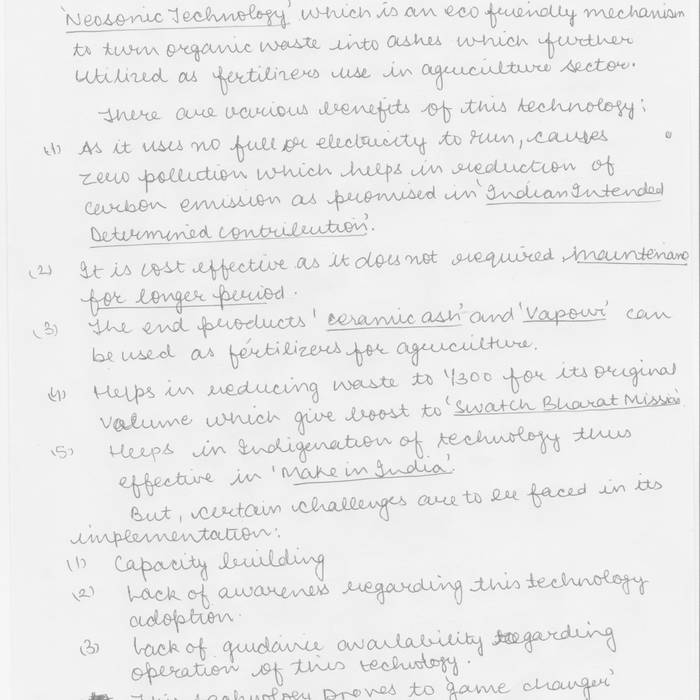 'Neosonic Technology' which is an eco friendly mechanism
to turn organic waste into ashes which further
utilized as fertilizers use in agriculture sector.
There are various benefits of this technology:
(1) As it uses no full or electricity to run, causes
zero pollution which helps in reduction of
carbon emission as promised in 'Indian Intended
Determined contribution'.
(2) It is cost effective as it does not required maintenanc
for longer period.
(3) The end products 'ceramic ash' and 'Vapour' can
be used as fertilizers for agriculture.
(4) Helps in reducing waste to 1/300 for its original
volume which give boost to 'Swatch Bharat Missio
(5) Helps in Indigenation of technology thus
effective in 'Make in India'.
But, certain challenges are to be faced in its
implementation:
(1) Capacity building
(2) Lack of awareness regarding this technology
adoption.
(3) Lack of guidance availability regarding
operation of this technology.
This technology proves to 'game changer'